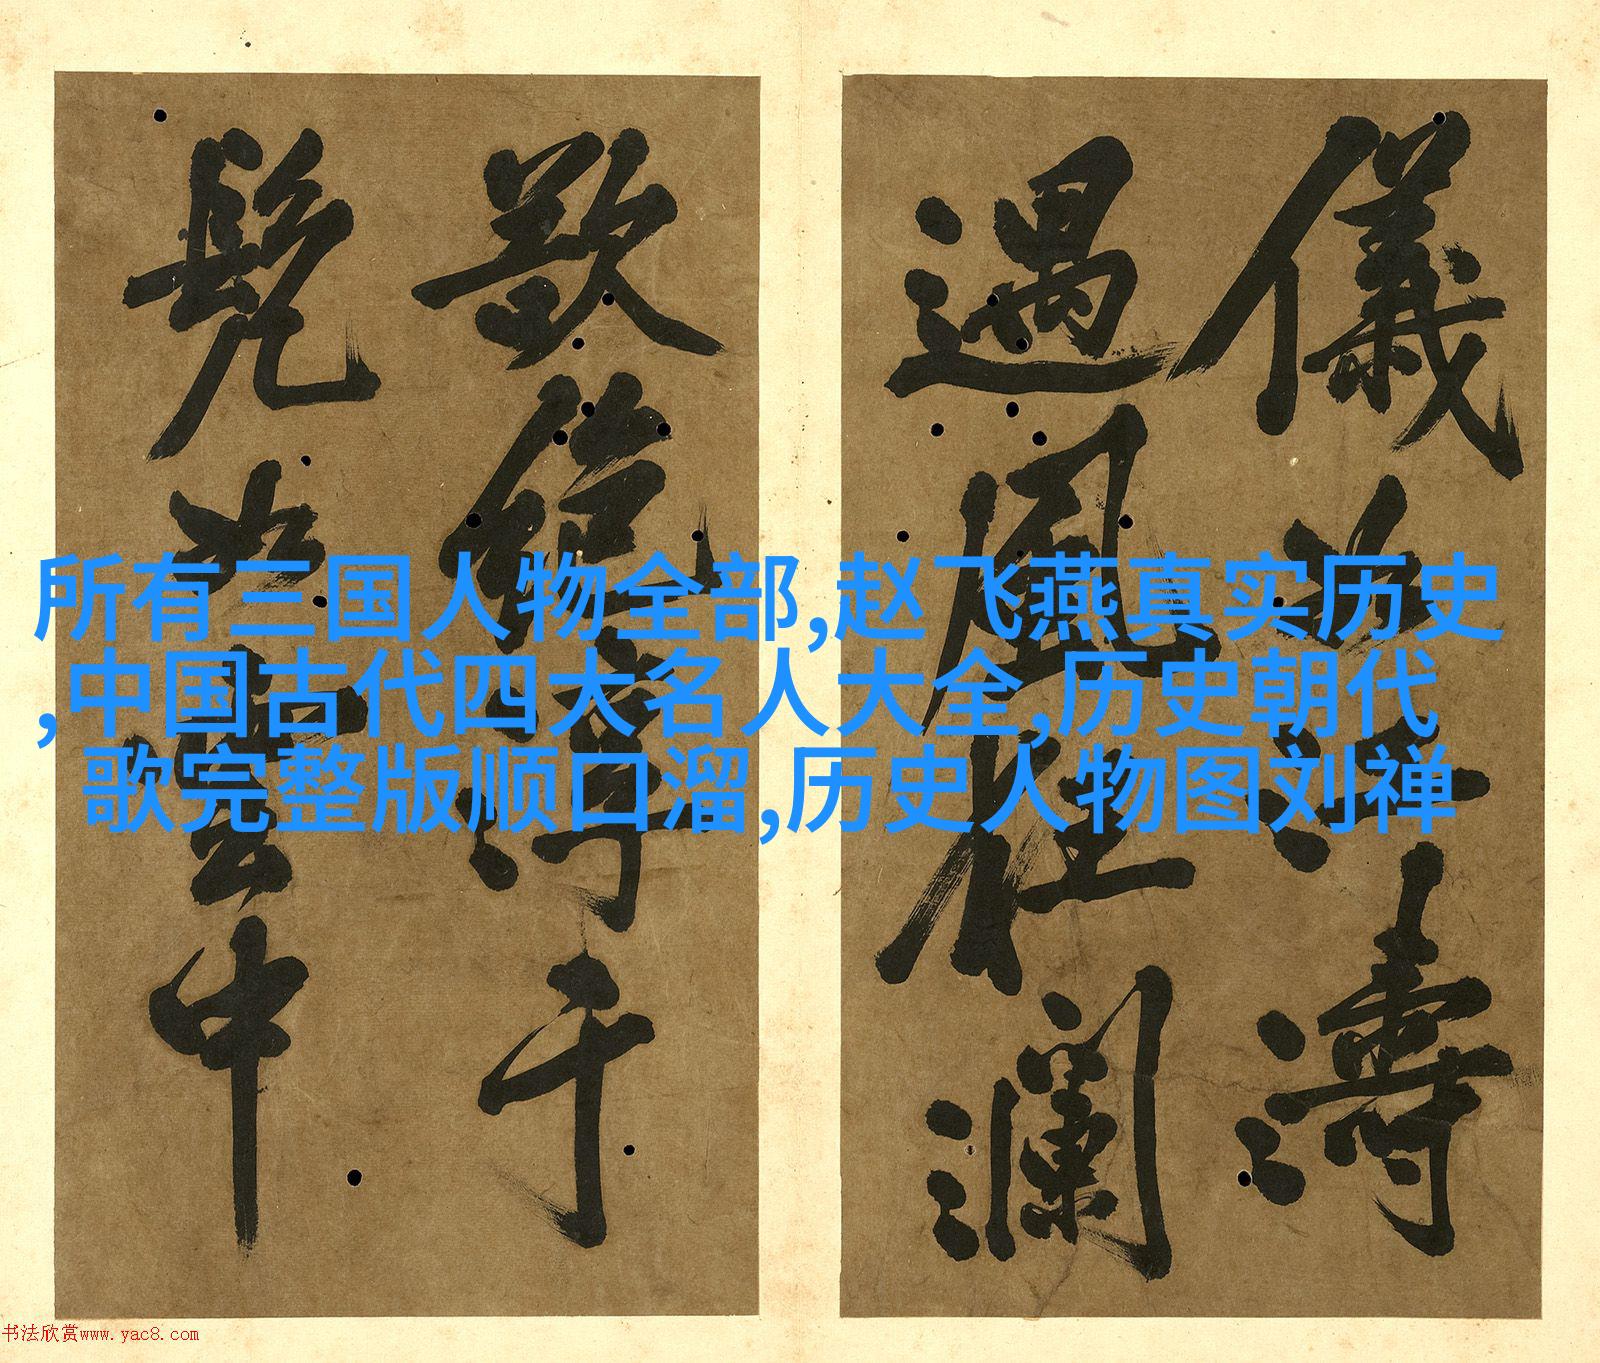 所有三国人物全部,赵飞燕真实历史
,中国古代四大名人大全,历史朝代
歌完整版顺口溜,历史人物图刘禅
儀江濤
風狂瀾
于
雲中
书法欣赏www.yac8.com